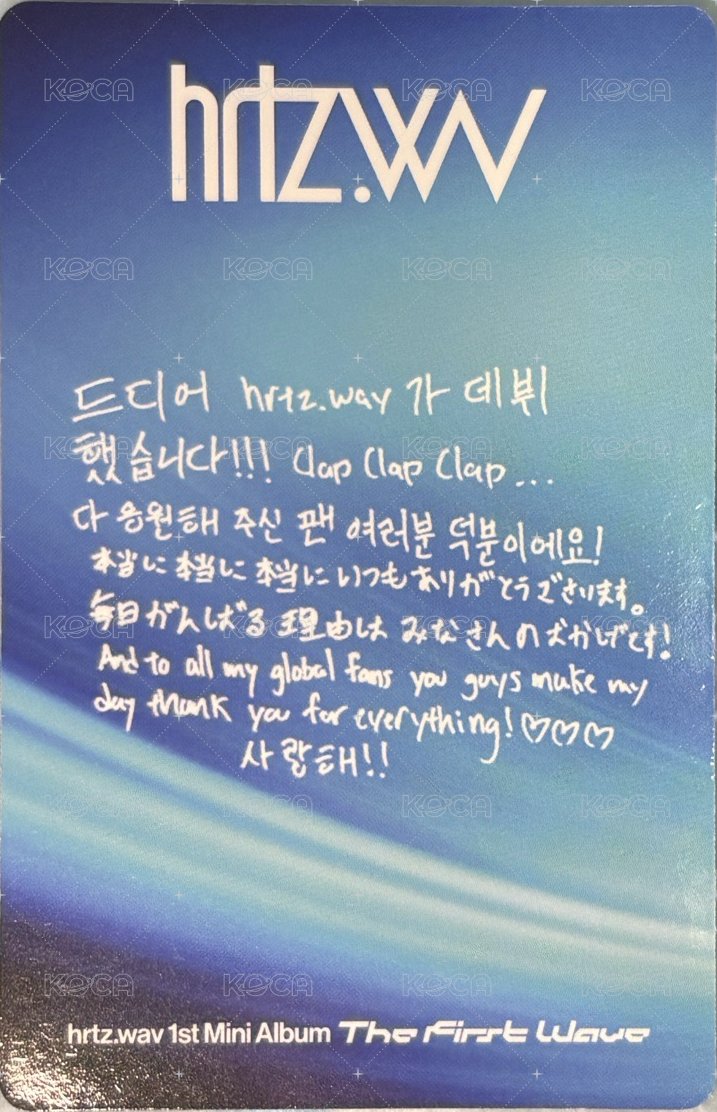 hrtz.wav
드디어 hrtz.way 가 데뷔
했습니다!!! Clap Clap Clap...
다 응원해 주신 팬 여러분 덕분이에요!
本当に 本当に 本当に いつもありがとうございます。
毎日がんばる理由は みなさんのおかげです!
And to all my global fans you guys make my
day thank you for everything! ♡♡♡
사랑해!!
hrtz.wav 1st Mini Album The First Wave
KOCA